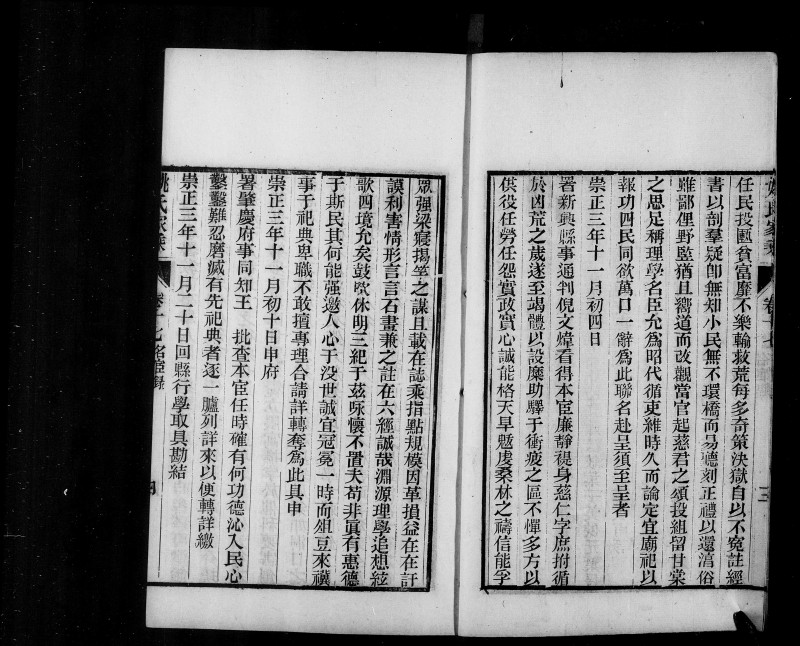 任民投匭貧富靡不樂輸救荒每多奇策決獄自以不寃註經
書以剖羣疑卽無知小民無不環橋而易聽刻正禮以還淯俗
雖鄙俚野愍猶且嚮道而改觀當官起慈君之頌投組留甘棠
之思足稱理學名臣允爲昭代循吏維時久而論定宜廟祀以
報功四民同欲萬口一辭爲此聯名赴呈須至呈者
崇正三年十一月初四日
署新興縣事通判倪文煒看得本宦廉靜禔身慈仁字庶拊循
於凶荒之歲遂至竭體以設糜助驛于衝疲之區不憚多方以
供役任勞任怨實政實心誠能格天旱魃虔桑林之禱信能孚
衆强梁寢揚竿之謀且載在誌乘指點規模因革損益在在訏
謨利害情形言言石畫兼之註在六經誠哉淵源理學追想絃
歌四境允矣鼓吹休明三紀于茲咏懷不置夫苟非眞有惠德
于斯民其何能强邀人心于没世誠宜冠冕一時而俎豆來禩
事于祀典卑職不敢擅專理合請詳轉奪爲此具申
崇正三年十一月初十日申府
署肇慶府事同知王　批查本宦任時確有何功德沁入民心
鑿鑿難忍磨滅有先祀典者逐一臚列詳來以便轉詳繳
崇正三年十一月二十日回縣行學取具勘結
姚氏家乘　卷十七名宦錄　四